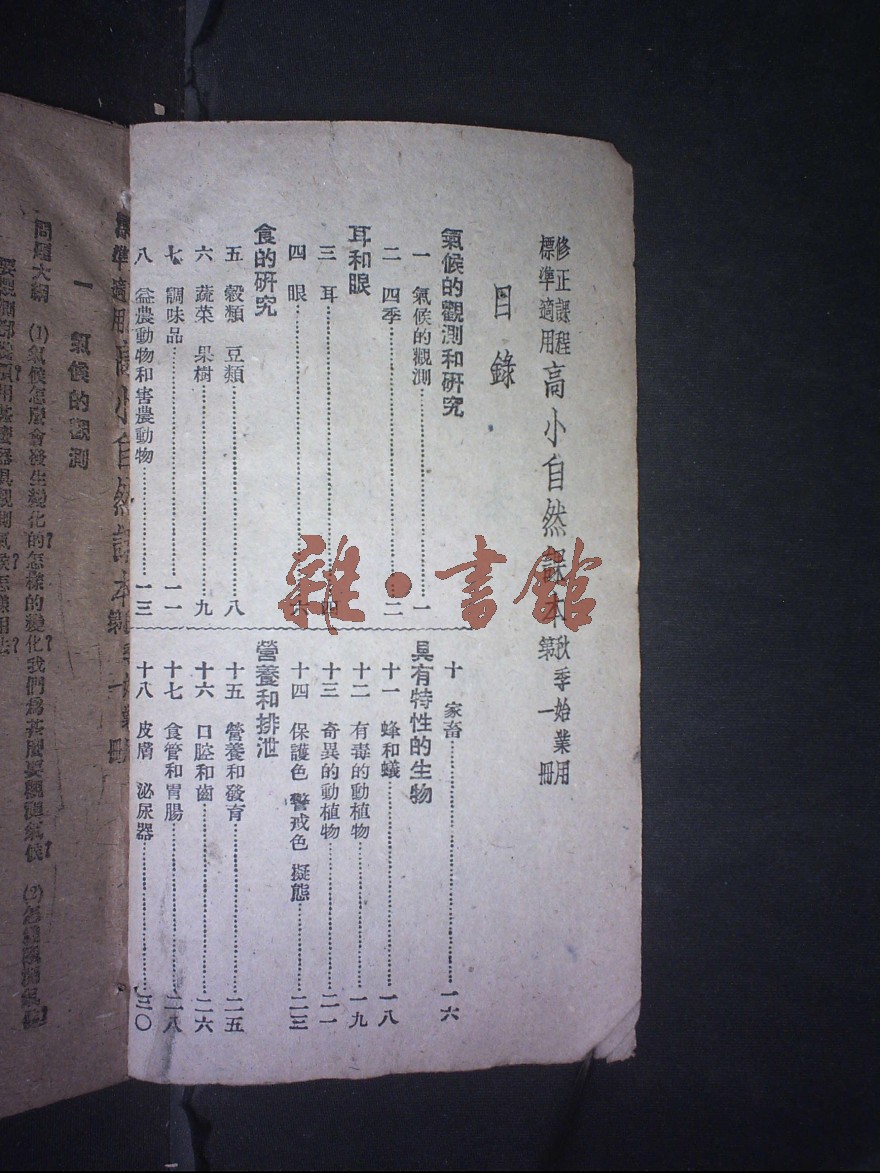 修正課程
標準適用
高小自然課本
秋季始業用
第一冊
目錄
氣候的觀測和研究
一 氣候的觀測……一
二 四季……二
耳和眼
三 耳……四
四 眼……六
食的研究
五 穀類 豆類……八
六 蔬菜 果樹……九
七 調味品……一一
八 益農動物和害農動物……一三
十 家畜……一六
具有特性的生物
十一 蜂和蟻……一八
十二 有毒的動植物……一九
十三 奇異的動植物……二一
十四 保護色 警戒色 擬態……二三
營養和排泄
十五 營養和發育……二五
十六 口腔和齒……二六
十七 食管和胃腸……二八
十八 皮膚 泌尿器……三〇
雜·書館
標準適用
小自然課本
一 氣候的觀測
問題大綱 (1)氣候怎麼會發生變化的?怎樣的變化?我們爲甚麼要觀測氣候? (2)